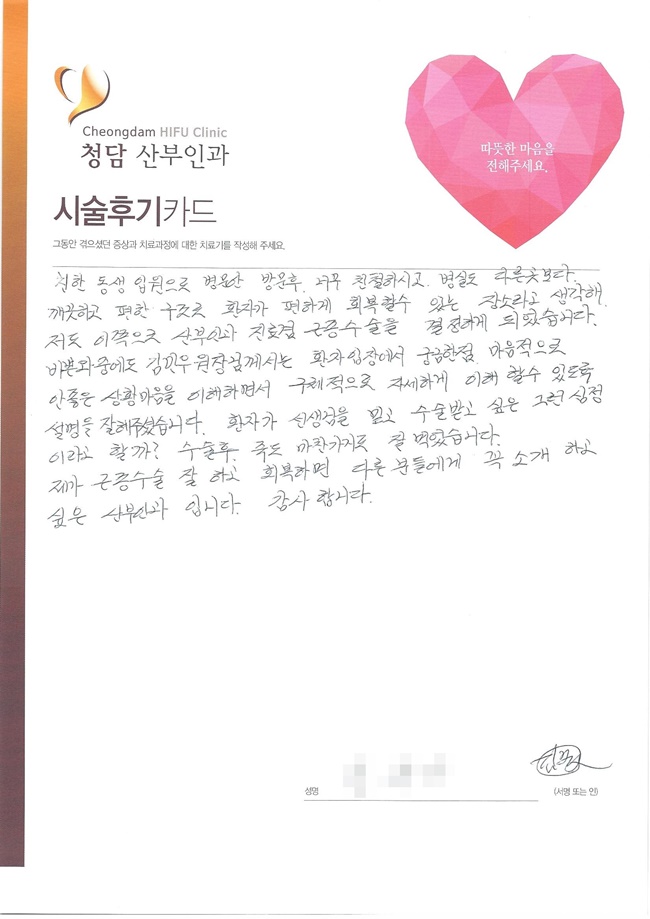 Cheongdam HIFU Clinic
청담 산부인과
따뜻한 마음을
전해주세요.
시술후기카드
그동안 겪으셨던 증상과 치료과정에 대한 치료기를 작성해 주세요.
친한 동생 입원으로 병문안 방문후, 너무 친절하시고, 병실도 다른곳보다.
깨끗하고 편한 구조로 환자가 편하게 회복할수 있는 장소라고 생각해.
저도 이쪽으로 산부인과 진료겸 근종수술을 결정하게 되었습니다.
바쁜와중에도 김민우 원장님께서는 환자입장에서 궁금한점, 마음적으로
안좋은 상황마음을 이해하면서 구체적으로 자세하게 이해 할수 있도록
설명을 잘해주셨습니다. 환자가 선생님을 믿고 수술받고 싶은 그런 심정
이라고 할까? 수술후, 죽도 마찬가지로 잘 먹었습니다.
제가 근종수술 잘 하고 회복하면 다른 분들에게 꼭 소개 하고
싶은 산부인과 입니다. 감사 합니다.
성명
(서명 또는 인)